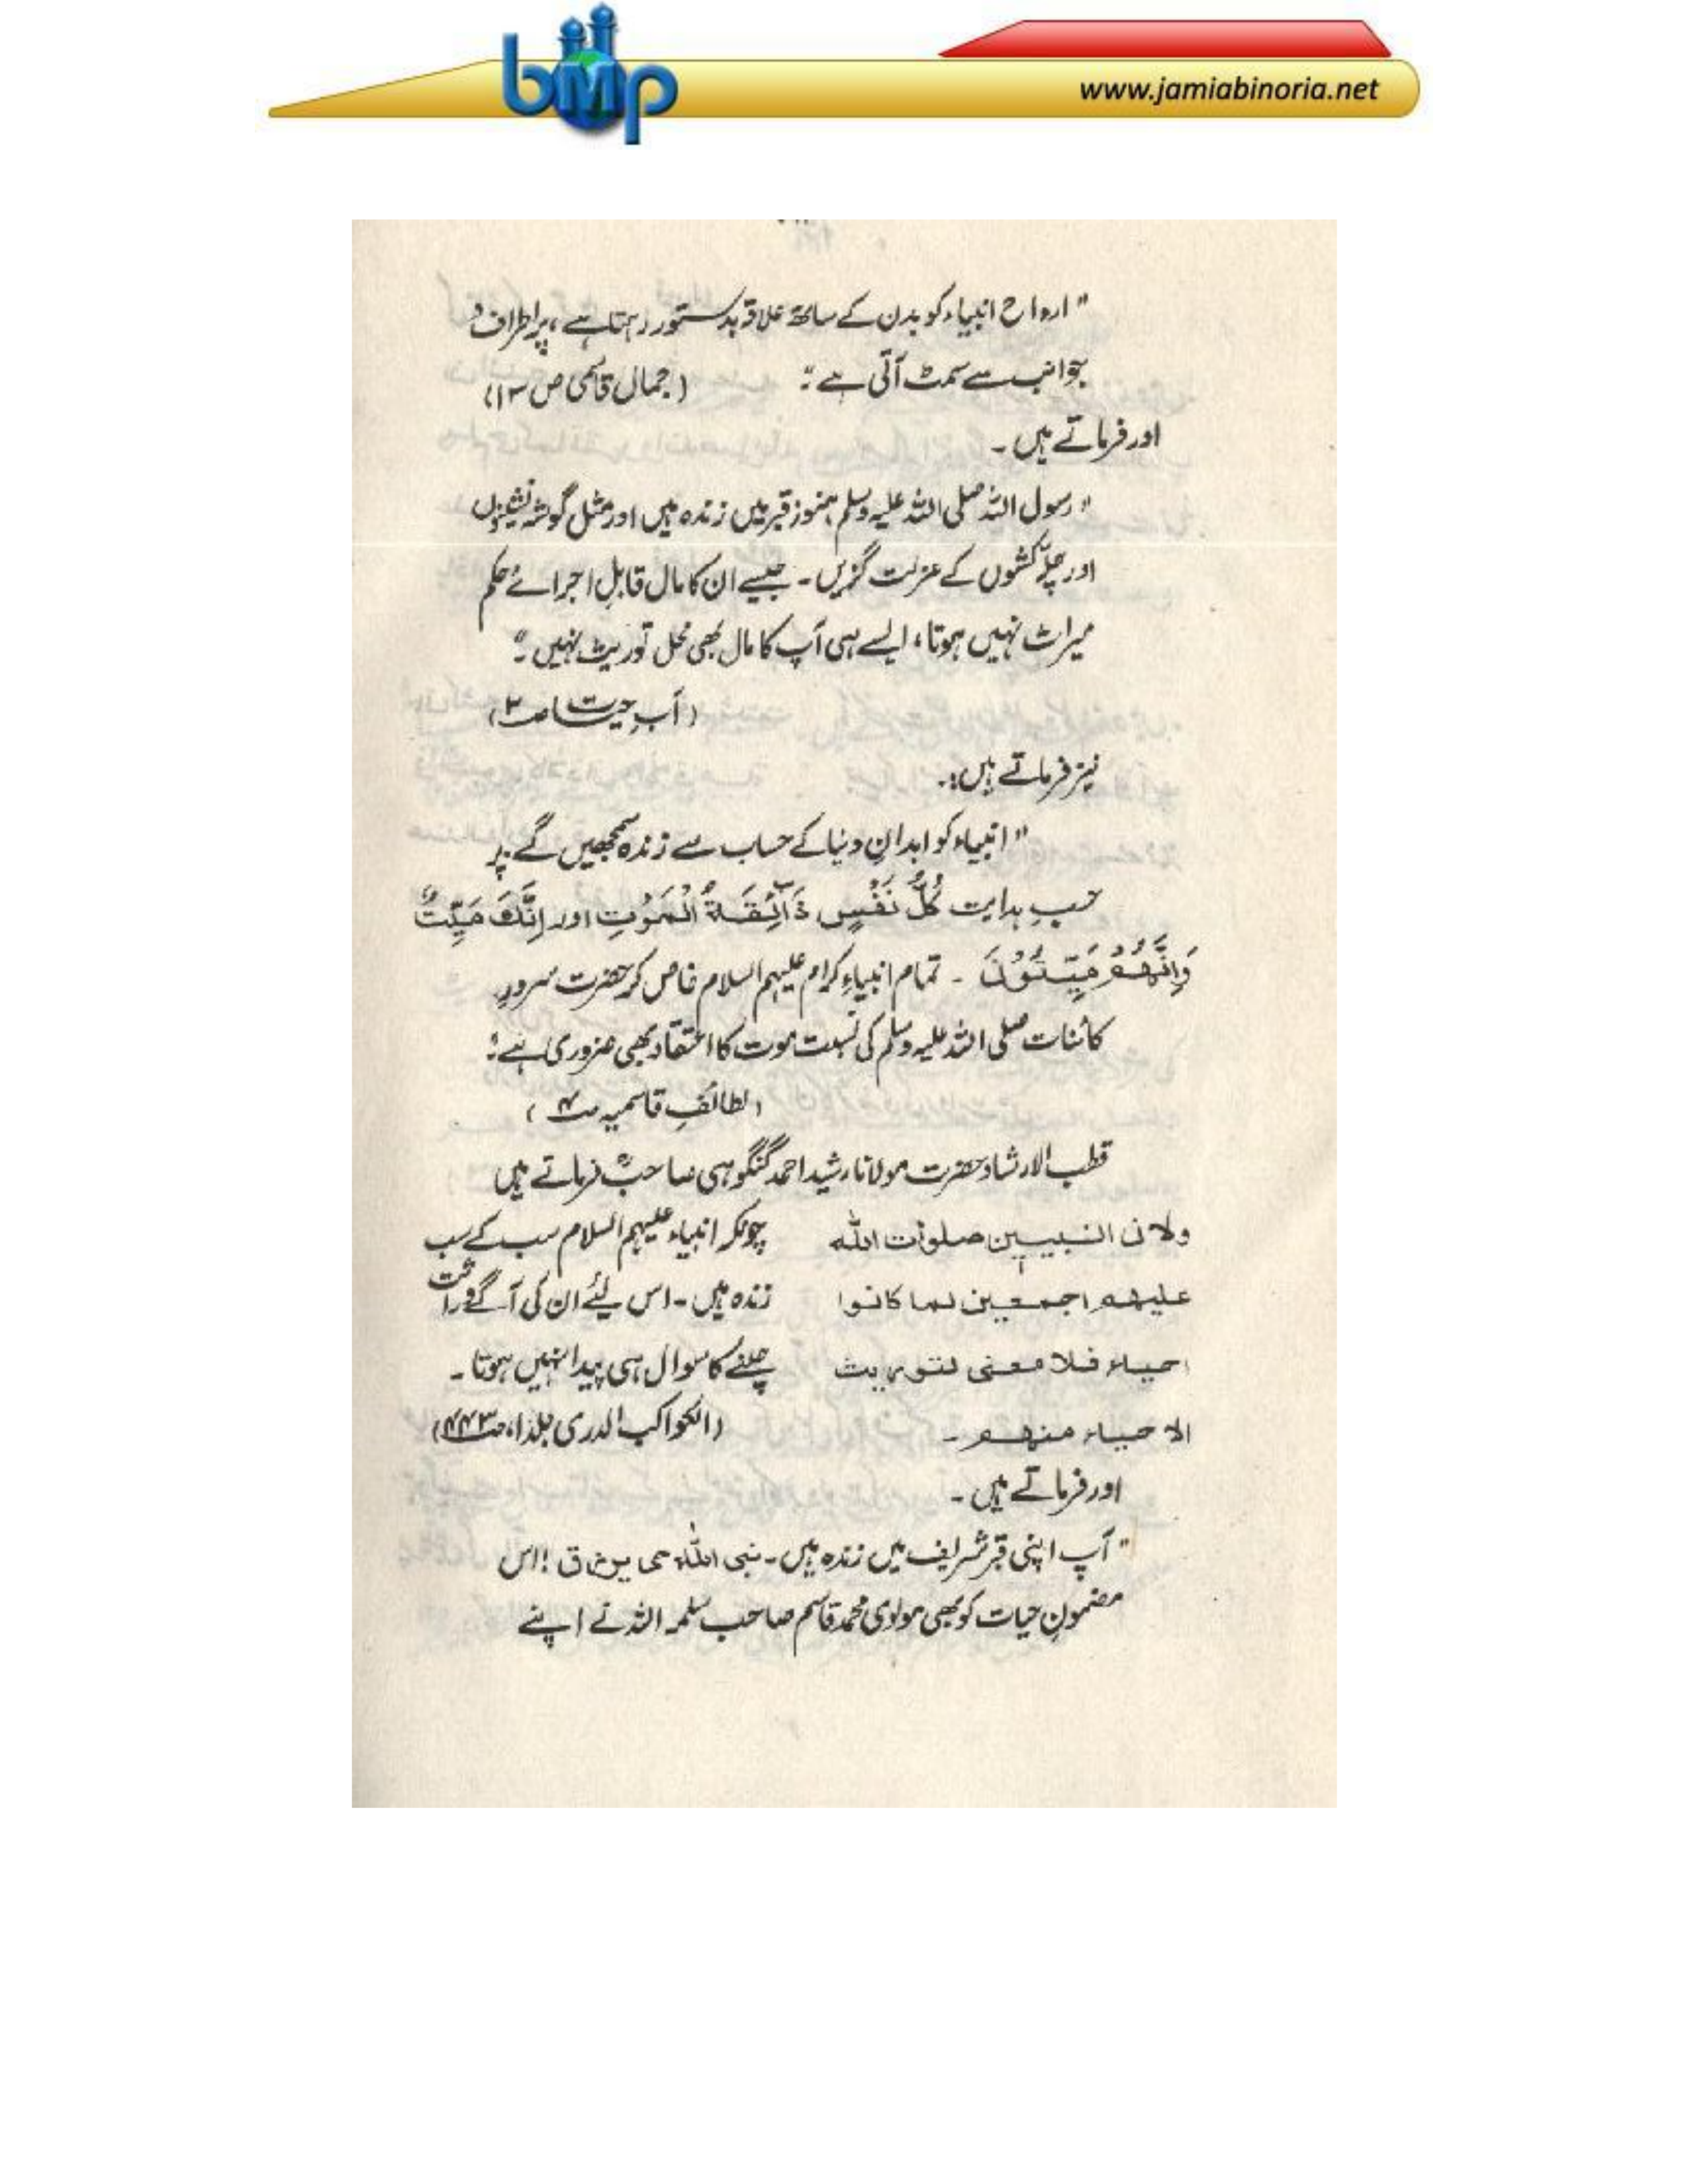 bmp
www.jamiabinoria.net
"ارواح انبیاء کو بدن کے ساتھ علاقہ بدستور رہتا ہے، پر اطراف و
جوانب سے سمٹ آتی ہے"
(جمال قاسمی ص ۱۳)
اور فرماتے ہیں ۔
"رسول اللہ صلی اللہ علیہ وسلم ہنوز قبر میں زندہ ہیں اور مثل گوشہ نشینوں
اور چلّہ کشوں کے عزلت گزیں ۔ جیسے ان کا مال قابلِ اجرائے حکم
میراث نہیں ہوتا، ایسے ہی آپ کا مال بھی محل توریث نہیں"
(آبِ حیات ص۲)
نیز فرماتے ہیں:۔
"انبیاء کو ابدانِ دنیا کے حساب سے زندہ سمجھیں گے پر
حسبِ ہدایت كُلُّ نَفْسٍ ذَآئِقَةُ الْمَوْتِ اور اِنَّكَ مَيِّتٌ
وَاِنَّهُمْ مَيِّتُوْنَ ۔ تمام انبیاءِ کرام علیہم السلام خاص کر حضرت سرورِ
کائنات صلی اللہ علیہ وسلم کی نسبت موت کا اعتقاد بھی ضروری ہے"
(لطائفِ قاسمیہ ص۴)
قطب الارشاد حضرت مولانا رشید احمد گنگوہی صاحبؒ فرماتے ہیں
ولان النبيين صلوات الله
عليهم اجمعين لما كانوا
احياء فلا معنى لتوريث
الاحياء منهم ۔
چونکہ انبیاء علیہم السلام سب کے سب
زندہ ہیں ۔ اس لئے ان کی آگے وراثت
چلنے کا سوال ہی پیدا نہیں ہوتا ۔
(الکواکب الدری جلد۱، ص۴۴۳)
اور فرماتے ہیں ۔
"آپ اپنی قبر شریف میں زندہ ہیں ۔ نبی اللہ حی یرزق ! اس
مضمونِ حیات کو بھی مولوی محمد قاسم صاحب سلمہ اللہ نے اپنے